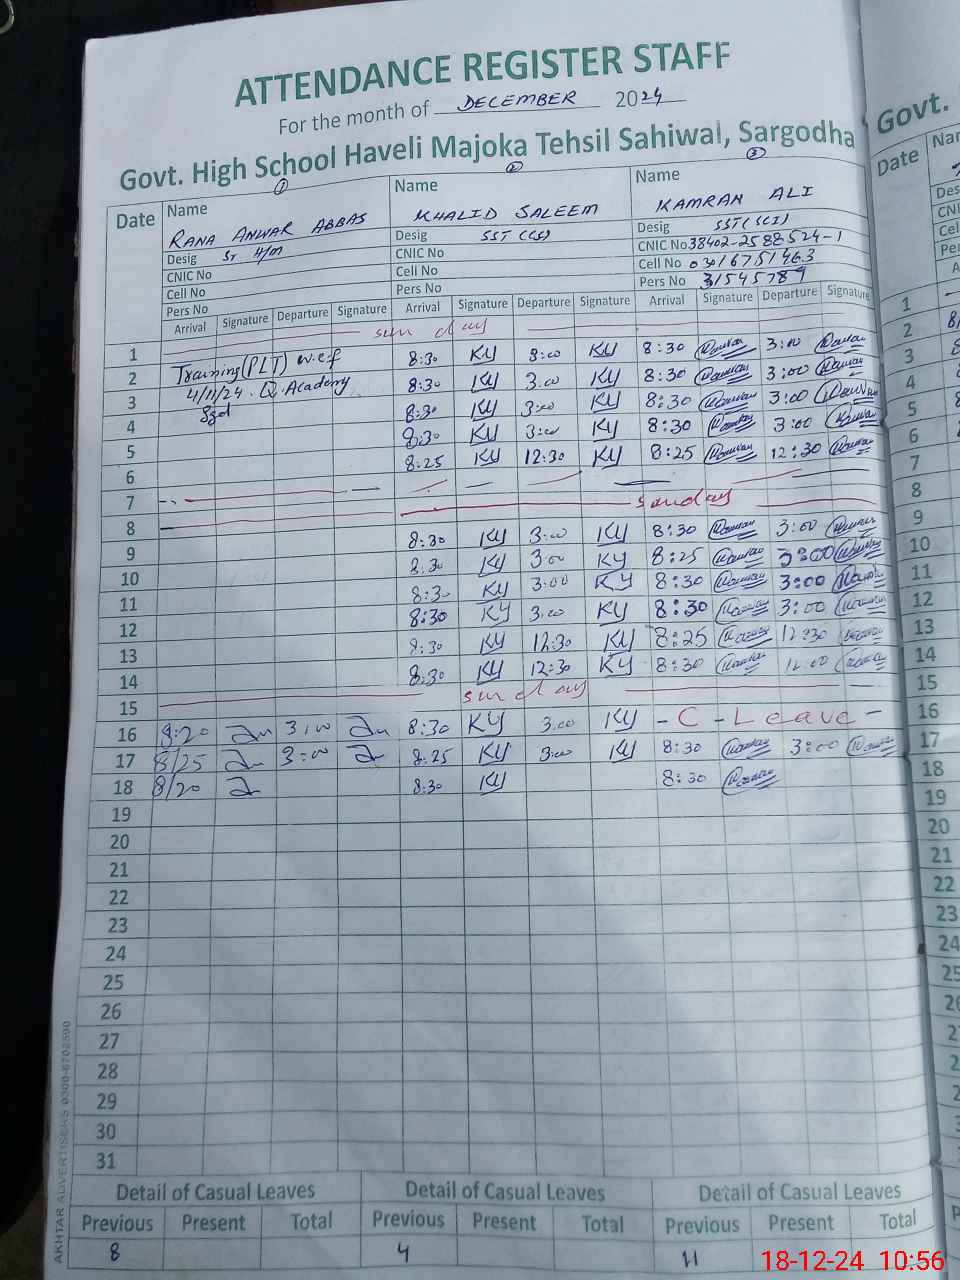 ATTENDANCE REGISTER STAFF
For the month of DECEMBER 2024
Govt. High School Haveli Majoka Tehsil Sahiwal, Sargodha
Govt.
① ② ③
Date Name Name Name Date
RANA ANWAR ABBAS KHALID SALEEM KAMRAN ALI
Desig ST H/M Desig SST (CS) Desig SST (SCI)
CNIC No CNIC No CNIC No 38402-2588524-1
Cell No Cell No Cell No 03016751463
Pers No Pers No Pers No 31545789
Arrival Signature Departure Signature Arrival Signature Departure Signature Arrival Signature Departure Signature
1 sun day 1
2 Training (PLT) w.e.f 8:30 KY 3:00 KY 8:30 3:00 2
3 4/11/24. Q. Academy 8:30 KY 3.00 KY 8:30 3:00 3
4 Sgd 8:30 KY 3:00 KY 8:30 3:00 4
5 8:30 KY 3:00 KY 8:30 3:00 5
6 8:25 KY 12:30 KY 8:25 12:30 6
7 — — — 7
8 sunday 8
9 8:30 KY 3:00 KY 8:30 3:00 9
10 8:30 KY 3:00 KY 8:25 3:00 10
11 8:30 KY 3:00 KY 8:30 3:00 11
12 8:30 KY 3.00 KY 8:30 3:00 12
13 8:30 KY 12:30 KY 8:25 12:30 13
14 8:30 KY 12:30 KY 8:30 12:00 14
15 sun day 15
16 8:20 3:00 8:30 KY 3.00 KY - C - Leave - 16
17 8/25 3:00 8:25 KY 3:00 KY 8:30 3:00 17
18 8/20 8:30 KY 8:30 18
19 19
20 20
21 21
22 22
23 23
24 24
25 25
26
27
28
29
30
31
Detail of Casual Leaves Detail of Casual Leaves Detail of Casual Leaves
Previous Present Total Previous Present Total Previous Present Total
8 4 11
AKHTAR ADVERTISERS 0300-6702590
18-12-24 10:56